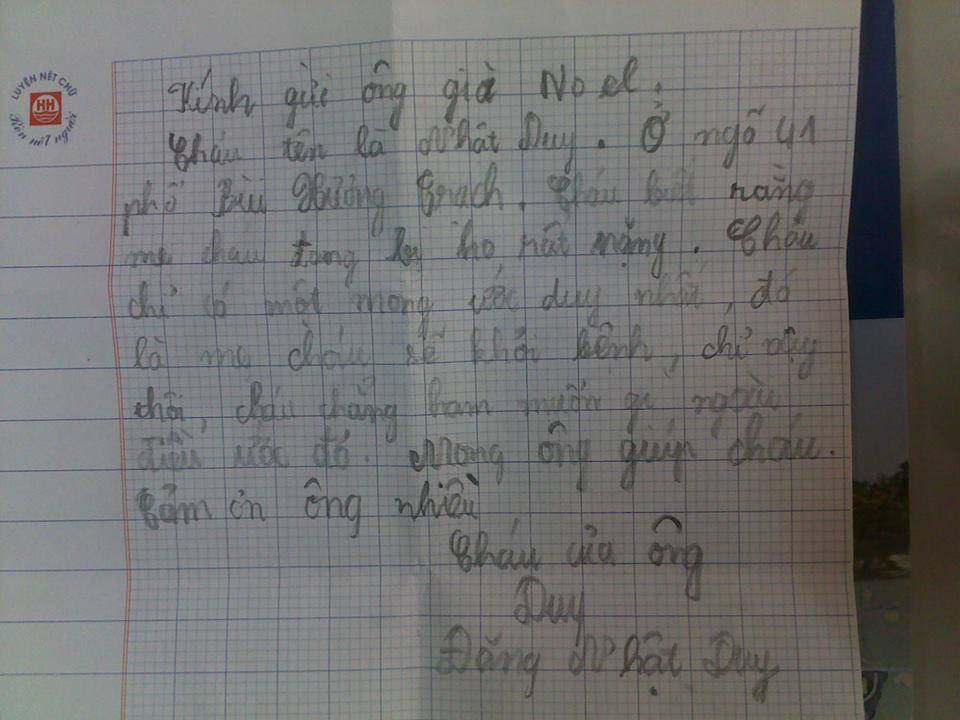 LUYỆN NÉT CHỮ
HH
Rèn nết người
Kính gửi ông già Noel.
Cháu tên là Nhât Duy. Ở ngõ 41
phố Bùi Xương Trạch. Cháu biết rằng
mẹ cháu đang bị ho rất nặng. Cháu
chỉ có một mong ước duy nhất, đó
là mẹ cháu sẽ khỏi bệnh, chỉ vậy
thôi, cháu chẳng ham muốn gì ngoài
điều ước đó. Mong ông giúp cháu.
Cảm ơn ông nhiều
Cháu của ông
Duy
Đặng Nhật Duy